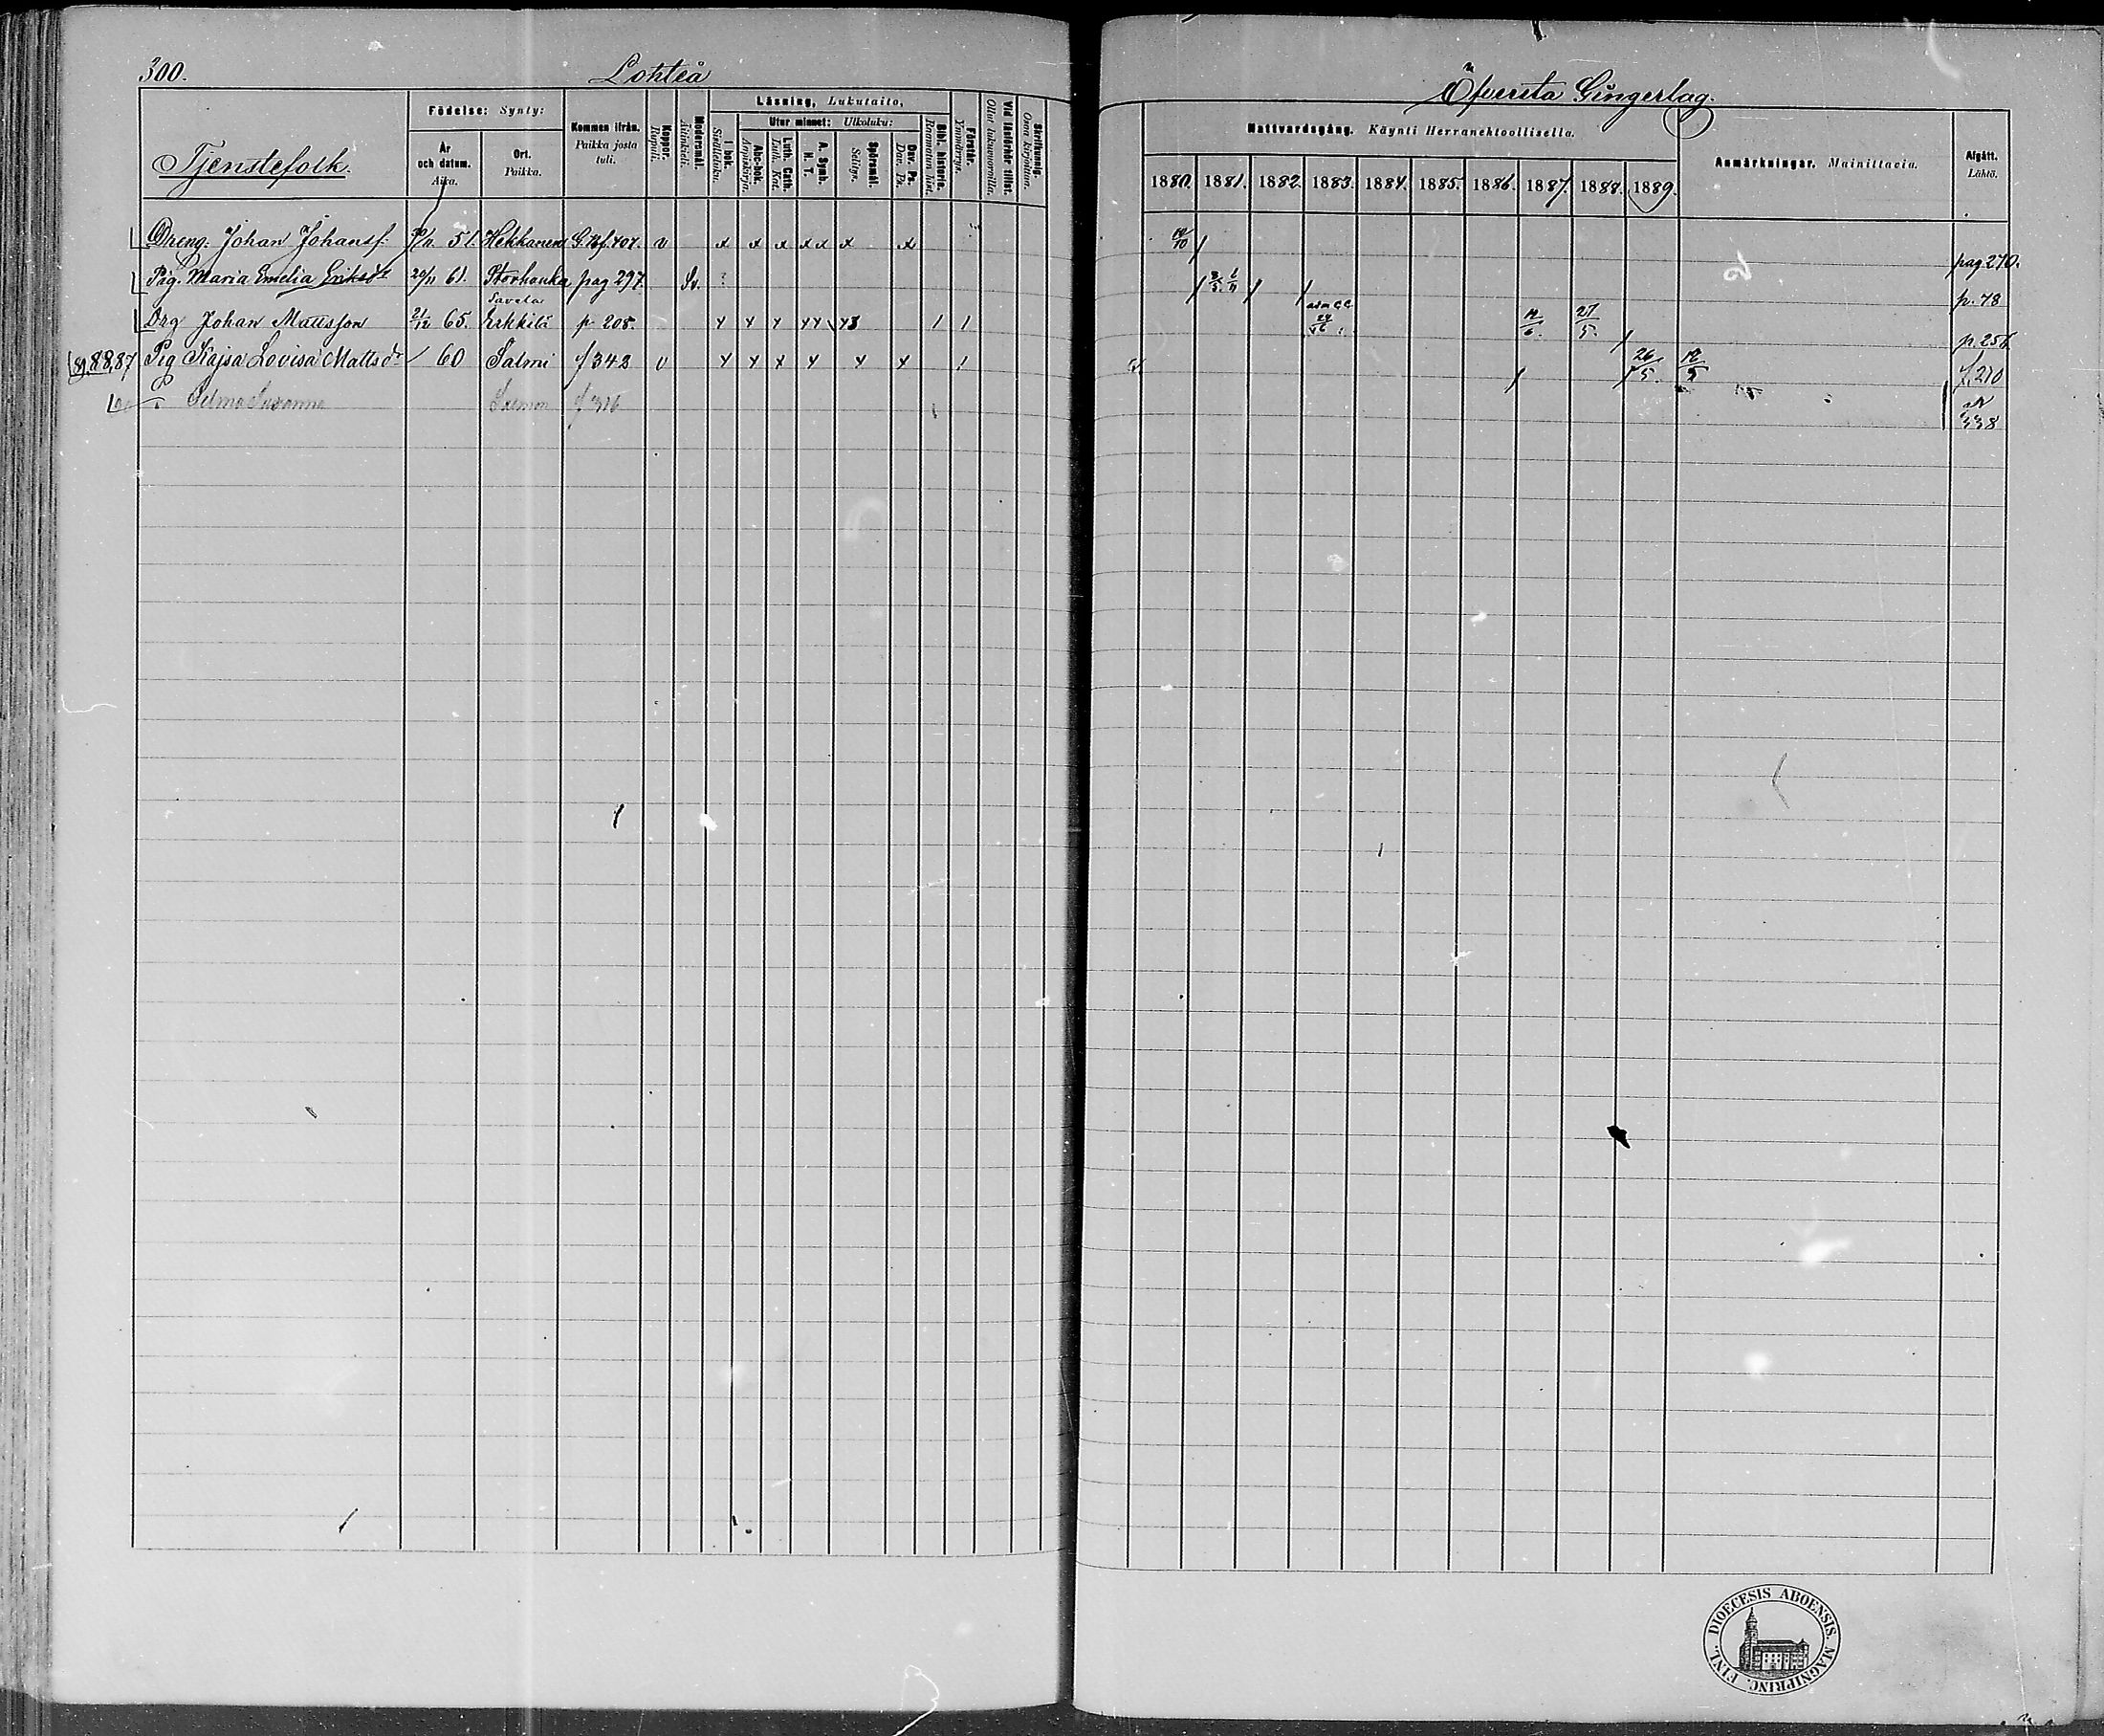 300.
Lohteå
Tjenstefolk.
Födelse: Synty:
År och datum. Aika.
Ort. Paikka.
Kommen ifrån. Paikka josta tuli.
Koppor. Rupuli.
Modersmål. Äitinkieli.
Läsning, Lukutaito,
I bok. Sisältluku.
Utur minnet: Ulkoluku:
Abc-bok. Aapiskirja.
Luth. Cath. Luth. Kat.
A. Symb. H. T.
Spörsmål. Selitys.
Dav. Ps. Dav. Ps.
Bibl. historia. Raamatun hist.
Förstår. Ymmärrys.
Vid läsförhör tillst. Ollut lukuvuoroilla.
Skrifkunnig. Osaa kirjoittaa.
Dreng. Johan Johansf. 51. G. Bf. 407. v x x x x x x x
Pig. Maria Emelia Eriksdr 20/11 61. Storhanka pag 297. Sv.
Drg Johan Mattsson 21/12 65. Erkkilä p 208.
88, 87 Pig Kajsa Lovisa Mattsdr 60 Salmi f 342 v
Selma Susanna f 316
Öfversta Gingerlag.
Nattvardsgång. Käynti Herranehtoollisella.
1880. 1881. 1882. 1883. 1884. 1885. 1886. 1887. 1888. 1889.
Anmärkningar. Mainittavia.
Afgått. Lähtö.
pag 270.
p. 78
27/5. p. 256
26/5. f. 210
338
DIOECESIS ABOENSIS. MAGNIPRINC. FINL.